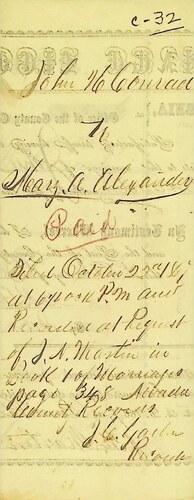 C-32
John H Conrad
To
Mary A. Alexander
Paid
Filed October 22nd
at 6 o'clock P.M and
Recorded at Request
of J. A. Martin in
Book 1 of Marriages
page 348 Nevada
County Records
Recorder